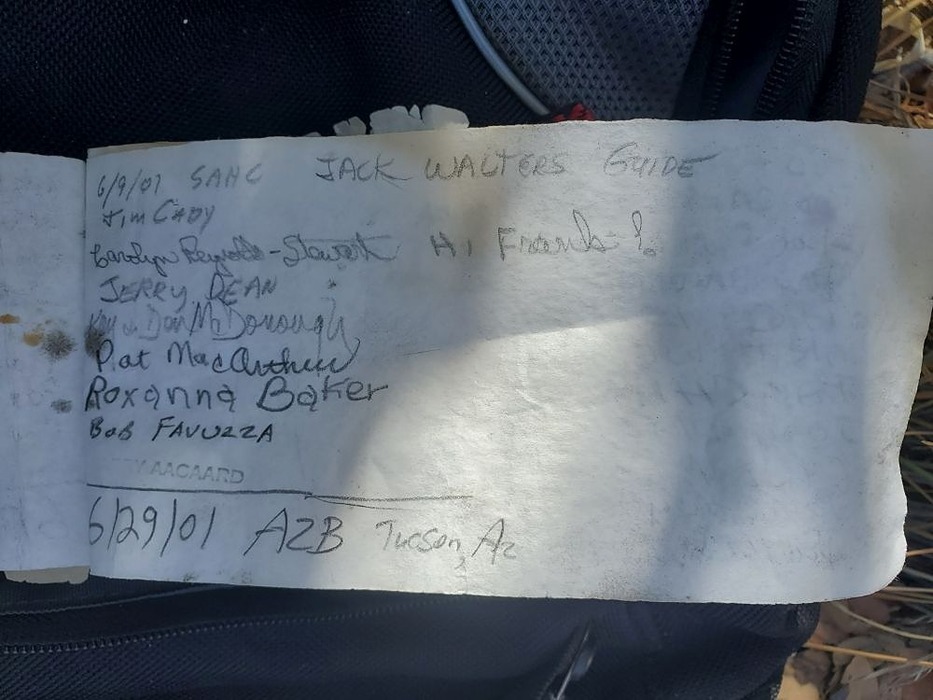 6/9/01 SAHC JACK WALTERS GUIDE
Jim CADY
Carolyn Reynolds-Stewart Hi Frank!
JERRY DEAN
Kay & Don McDonough
Pat MacArthur
Roxanna Baker
Bob FAVUZZA
AAGAARD
6/29/01 AZB Tucson, Az